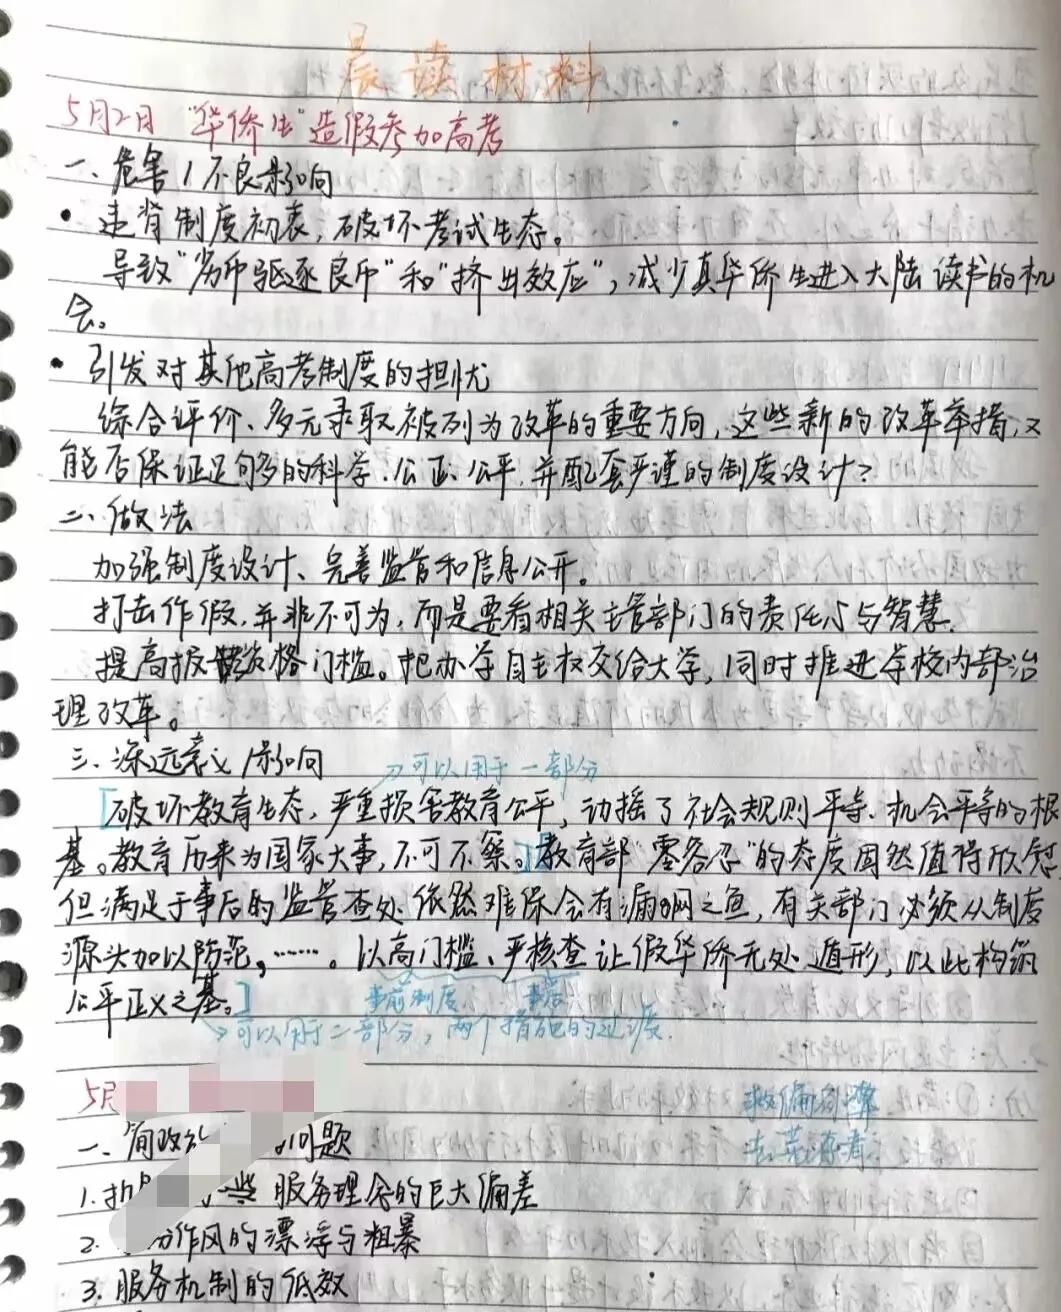 晨读材料
5月2日 "华侨生"造假参加高考
一、危害/不良影响
• 违背制度初衷，破坏考试生态。
导致"劣币驱逐良币"和"挤出效应"，减少真华侨生进入大陆读书的机
会。
• 引发对其他高考制度的担忧
综合评价、多元录取被列为改革的重要方向，这些新的改革举措，又
能否保证足够多的科学、公正、公平，并配套严谨的制度设计？
二、做法
加强制度设计、完善监管和信息公开。
打击作假，并非不可为，而是要看相关主管部门的责任心与智慧.
提高报考资格门槛。把办学自主权交给大学，同时推进学校内部治
理改革。
三、深远意义/影响
→可以用于一部分
[破坏教育生态，严重损害教育公平，动摇了社会规则平等、机会平等的根
基。教育历来为国家大事，不可不察。][教育部"零容忍"的态度固然值得欣慰，
但满足于事后的监管查处，依然难保会有漏网之鱼，有关部门必须从制度
源头加以防范，……。以高门槛、严核查让假华侨无处遁形，以此构筑
公平正义之基。]
事前制度 事后
→可以用于二部分，两个措施的过渡.
5月
一、简政 问题
1. 服务理念的巨大偏差
2. 作风的漂浮与粗暴
3. 服务机制的低效